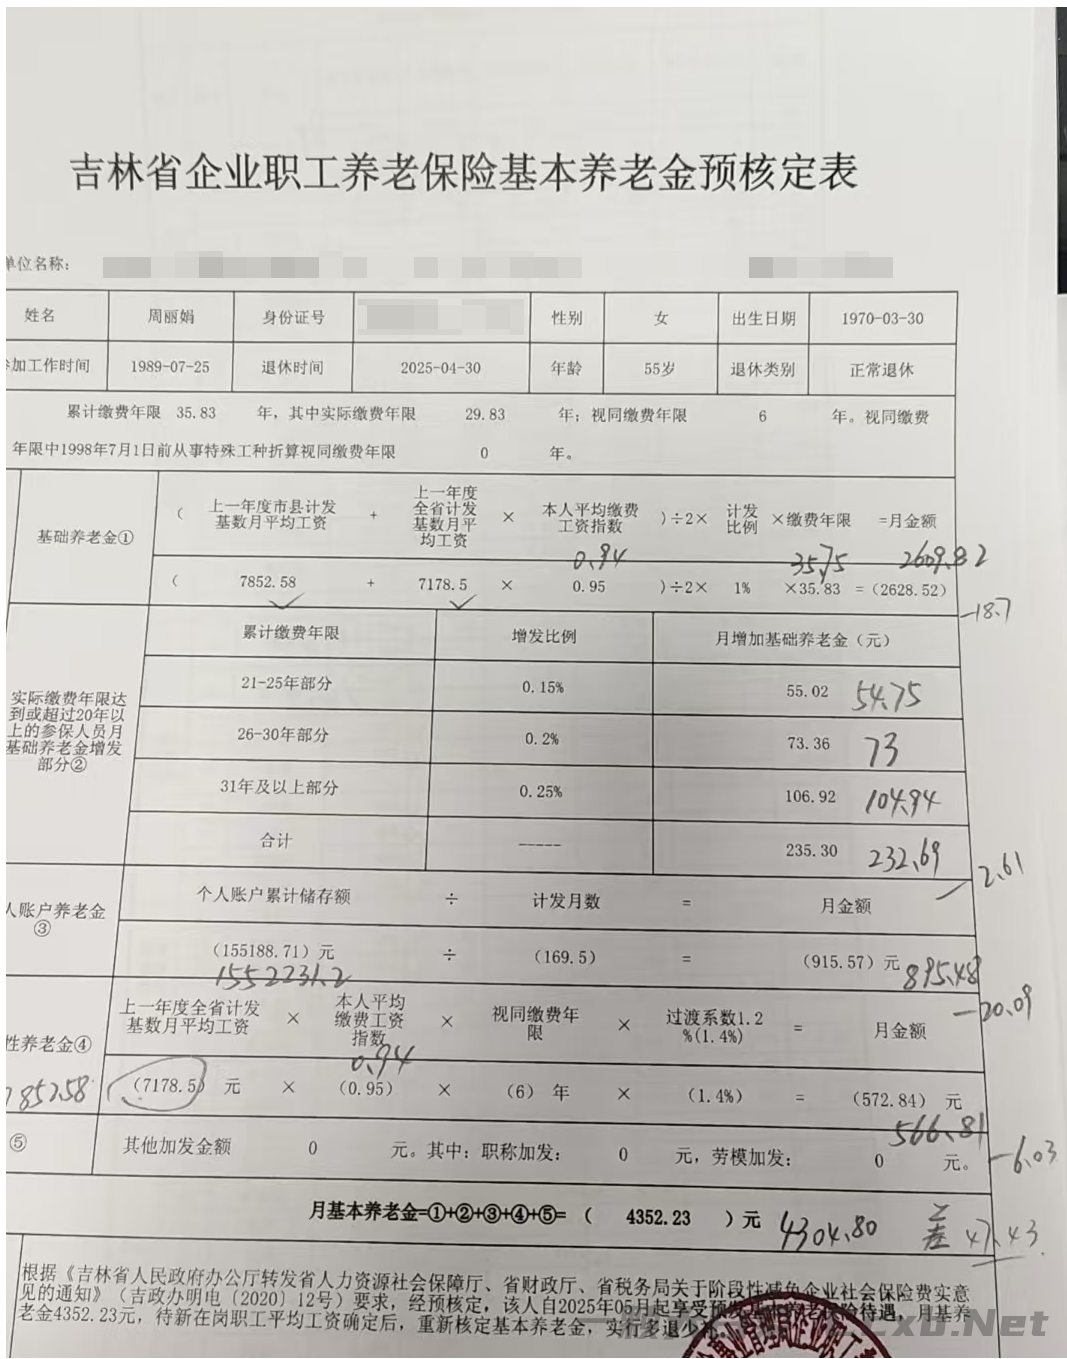 吉林省企业职工养老保险基本养老金预核定表
单位名称:
姓名 周丽娟 身份证号 性别 女 出生日期 1970-03-30
参加工作时间 1989-07-25 退休时间 2025-04-30 年龄 55岁 退休类别 正常退休
累计缴费年限 35.83 年，其中实际缴费年限 29.83 年；视同缴费年限 6 年。视同缴费
年限中1998年7月1日前从事特殊工种折算视同缴费年限 0 年。
基础养老金①
( 上一年度市县计发基数月平均工资 + 上一年度全省计发基数月平均工资 × 本人平均缴费工资指数 )÷2× 计发比例 ×缴费年限 =月金额
0.94 35.75 2609.82
( 7852.58 + 7178.5 × 0.95 )÷2× 1% ×35.83 =(2628.52)
-18.7
实际缴费年限达到或超过20年以上的参保人员月基础养老金增发部分②
累计缴费年限 增发比例 月增加基础养老金（元）
21-25年部分 0.15% 55.02 54.75
26-30年部分 0.2% 73.36 73
31年及以上部分 0.25% 106.92 104.94
合计 ----- 235.30 232.69
-2.61
人账户养老金③
个人账户累计储存额 ÷ 计发月数 = 月金额
(155188.71) 元 ÷ (169.5) = (915.57) 元 895.48
-20.09
性养老金④
上一年度全省计发基数月平均工资 × 本人平均缴费工资指数 × 视同缴费年限 × 过渡系数1.2%(1.4%) = 月金额
0.94
7852.58 (7178.5) 元 × (0.95) × (6) 年 × (1.4%) = (572.84) 元
566.81
-6.03
⑤ 其他加发金额 0 元。其中: 职称加发: 0 元，劳模加发: 0 元。
月基本养老金=①+②+③+④+⑤= ( 4352.23 ) 元 4304.80 差 47.43
根据《吉林省人民政府办公厅转发省人力资源社会保障厅、省财政厅、省税务局关于阶段性减免企业社会保险费实意
见的通知》（吉政办明电〔2020〕12号）要求，经预核定，该人自2025年05月起享受预发基本养老保险待遇，月基养
老金4352.23元，待新在岗职工平均工资确定后，重新核定基本养老金，实行多退少